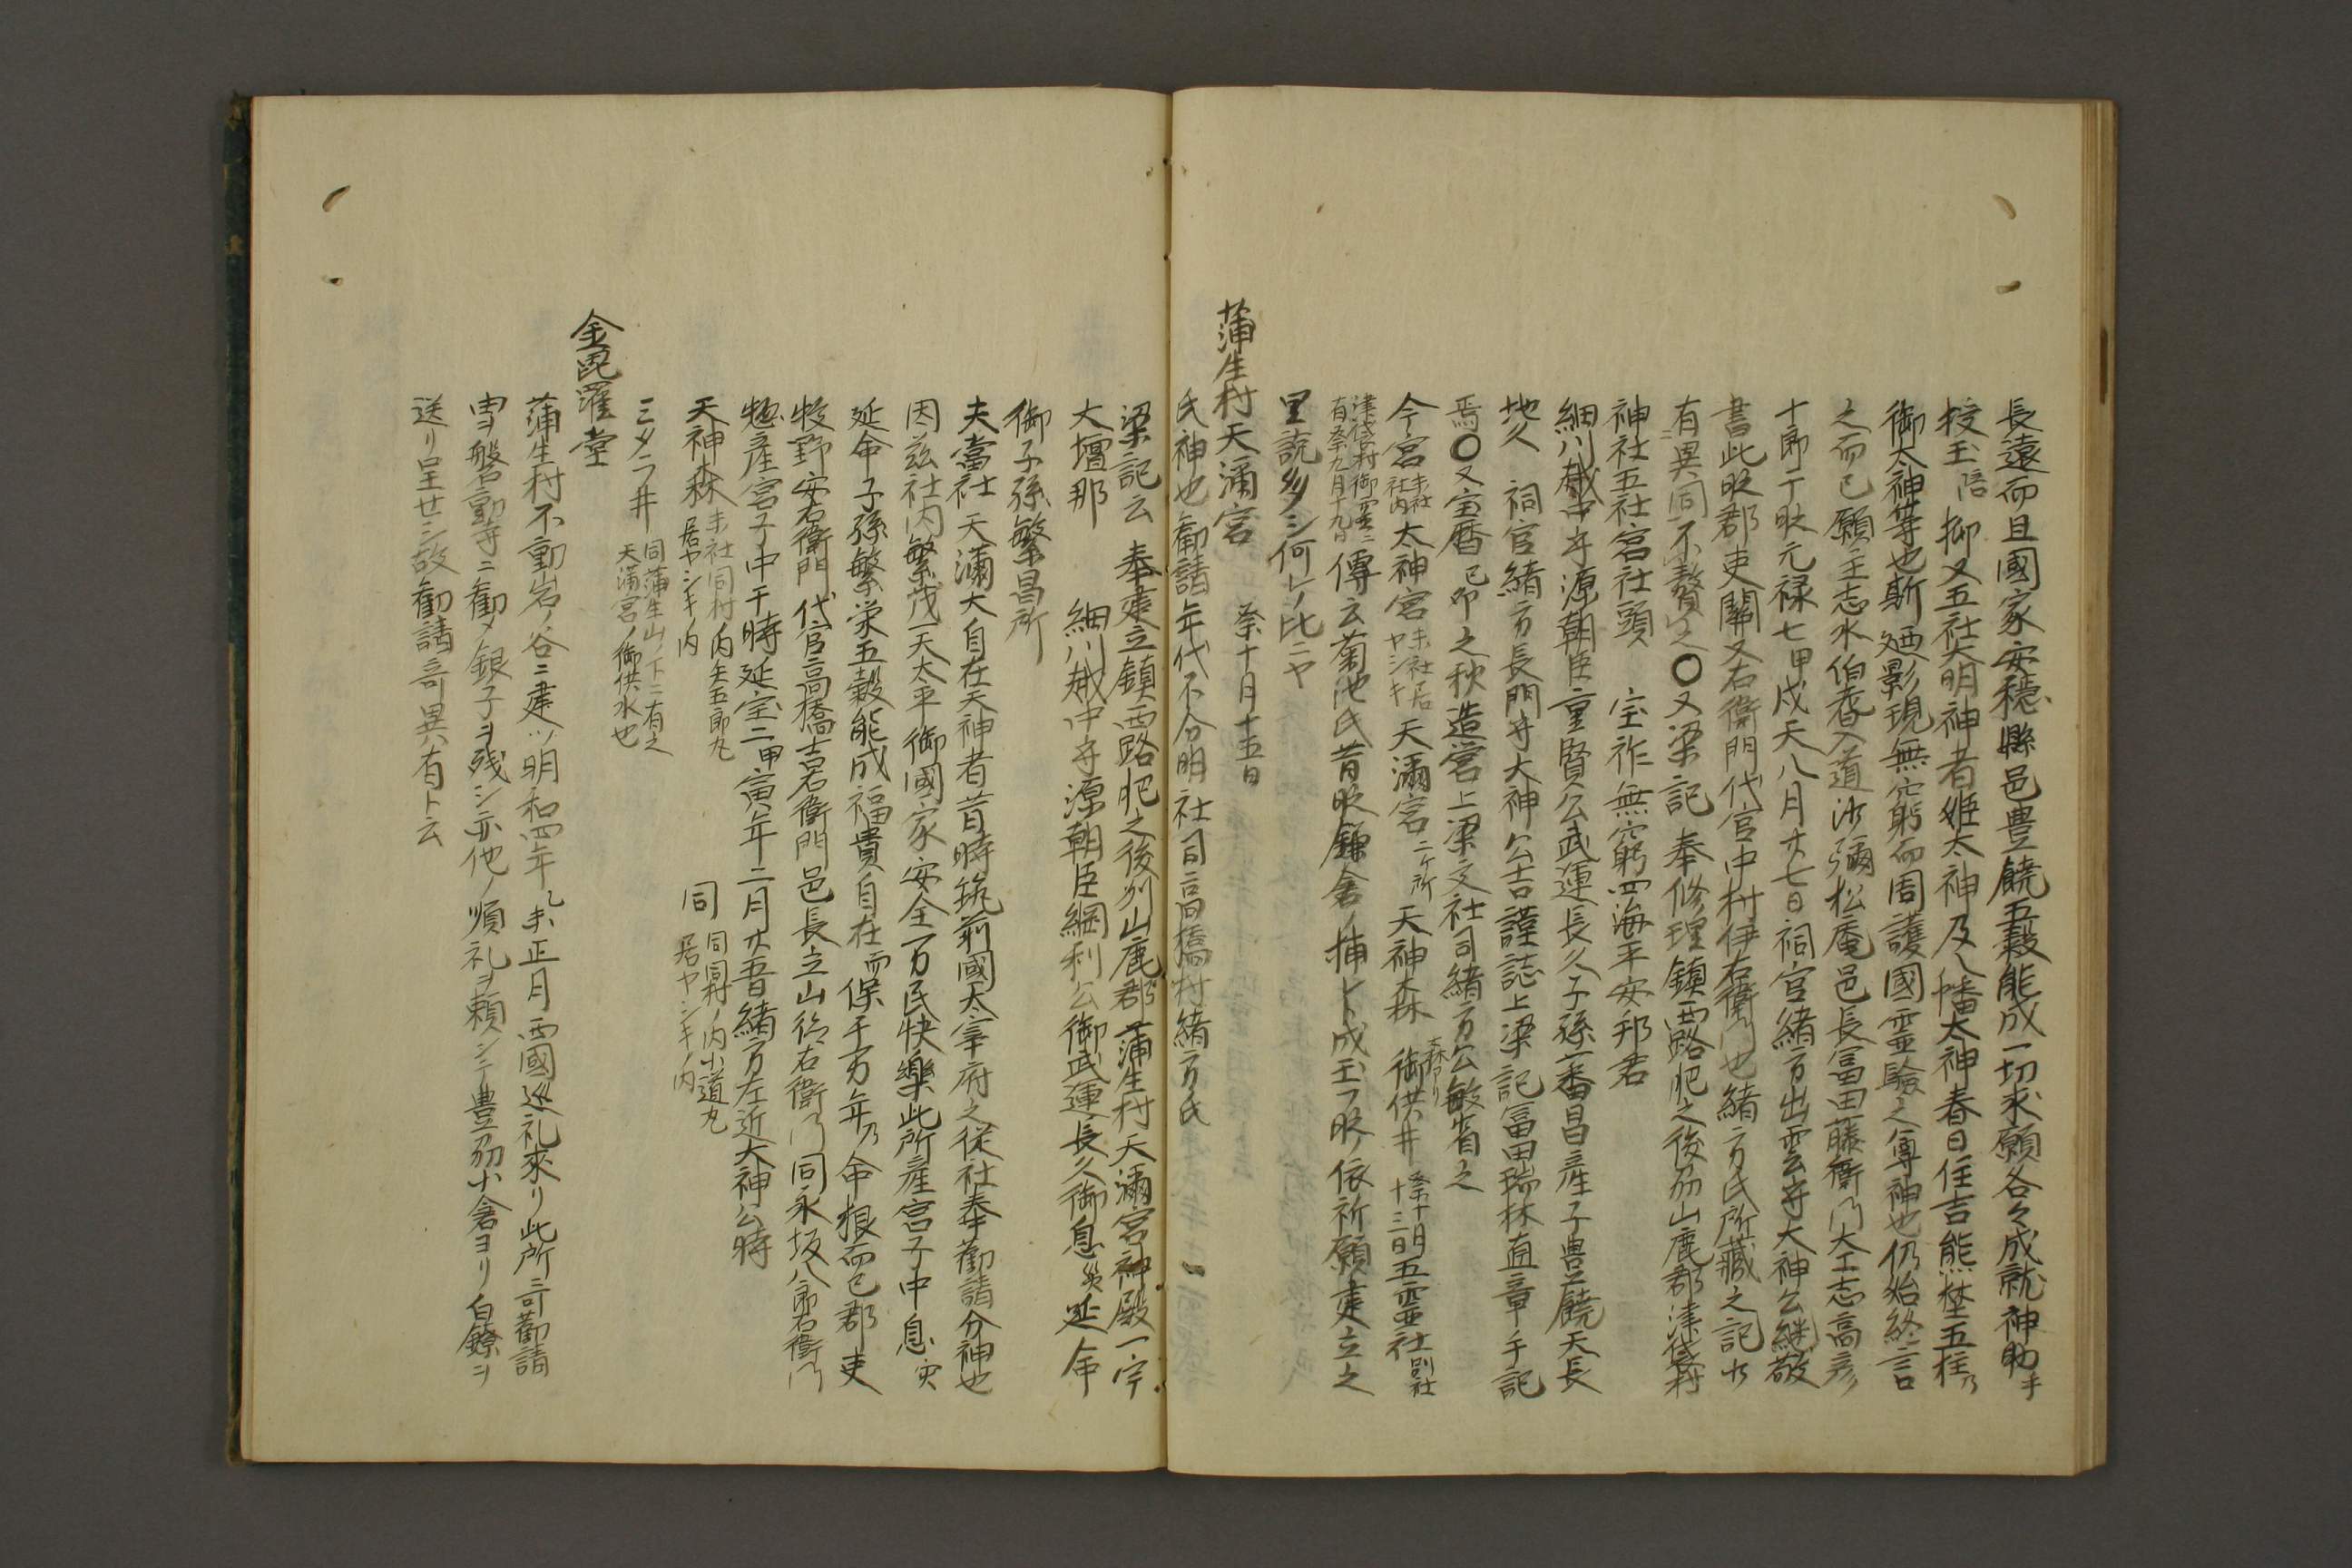 長遠而且國家安穏縣邑豊饒五穀能成一切求願各々成就神助乎
授玉陪 抑又五社大明神者姫太神及八幡太神春日住吉熊埜五柱乃
御大神等也斯廼影現無窮而周護國霊驗之尊神也仍始終言
之而已願主志水伯耆入道沙彌松庵邑長冨田藤右衛門大工志高彦
十郎于時元禄七甲戌天八月廿七日祠官緒方出雲守大神公継敬
書此時郡吏關又右衛門代官中村伊右衛門也緒方氏所藏之記ニ
有異同不贅之〇又梁記 奉修理鎮西路肥之後刕山鹿郡津袋村
神社五社宮社頭 宝祚無窮四海平安邦君
細川越中守源朝臣重賢公武運長久子孫番昌産子豊饒天長
地久 祠官緒方長門守大神公吉謹誌上梁記冨田瑞林直章手記
焉〇又宝暦己卯之秋造営上梁文社司緒方公敏省之
今宮末社社内 太神宮末社居ヤシキ 天満宮二ケ所 天神森森アリ 御供井祭十月十三日 五霊社別社
津袋村御霊ニ有祭九月十九日 傳云菊池氏昔時鎌倉ノ捕ト成玉フ時ノ依祈願建立之
里説多シ何レノ比ニヤ
蒲生村天満宮 祭十月十五日
氏神也勸請年代不分明社司高橋村緒方氏
梁記云 奉建立鎮西路肥之後刕山鹿郡蒲生村天満宮神殿一宇
大壇那 細川越中守源朝臣綱利公御武運長久御息災延命
御子孫繁昌所
夫當社天満大自在天神者昔時筑前國太宰府之従社奉勸請分神也
因茲社内繁茂一天太平御國家安全万民快樂此所産宮子中息灾
延命子孫繁栄五穀能成福貴自在而保千万年乃命根而已郡吏
牧野安右衛門代官高橋吉右衛門邑長立山徳右衛門同永坂八郎右衛門
惣産宮子中于時延宝二甲寅年二月廿五日緒方左近大神公時
天神森末社同村ノ内矢五郎丸居ヤシキノ内 同同同村ノ内小道丸居ヤシキノ内
ミタラ井同蒲生山ノ下ニ有之天満宮ノ御供水也
金毘羅堂
蒲生村不動岩ノ谷ニ建ツ明和四年乙未正月西國巡礼來リ此所ニ可勸請
由ヲ磐動寺ニ勸メ銀子ヲ残シ亦他ノ順礼ヲ頼ンテ豊刕小倉ヨリ白鐐ヲ
送リ呈セシ故勸請奇異有ト云